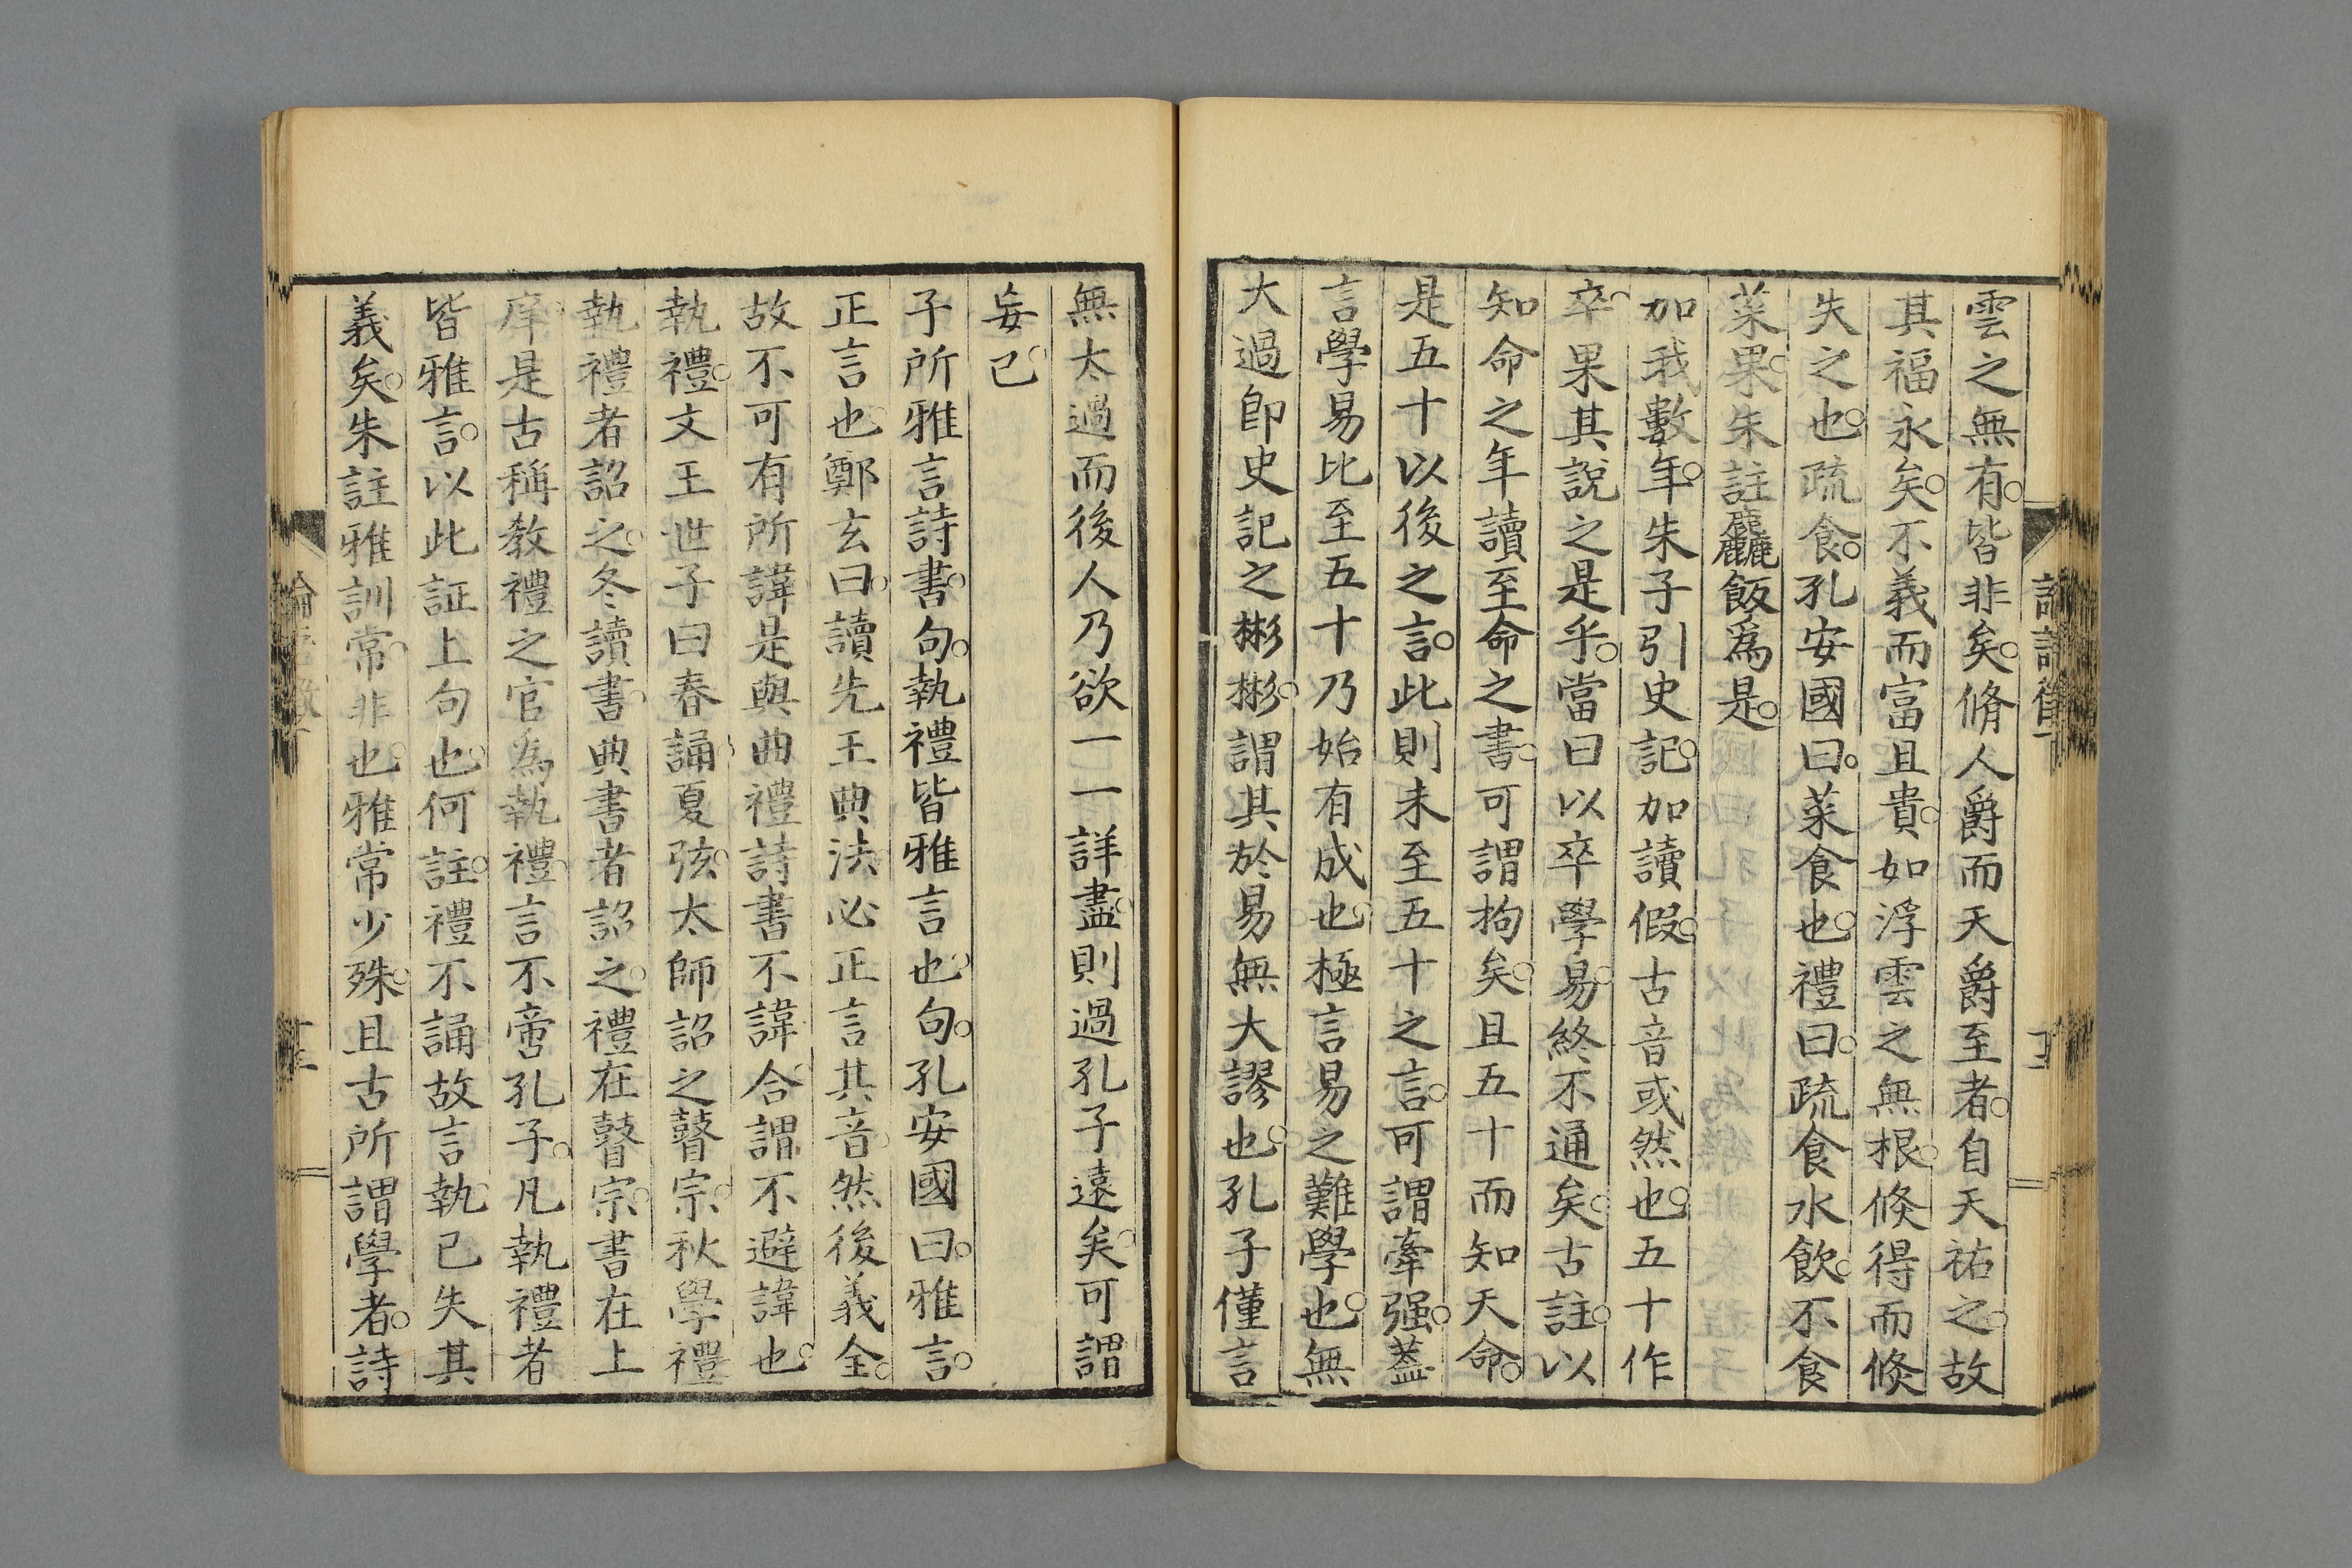 雲之無有皆非矣脩人爵而天爵至者自天祐之故
其福永矣不義而富且貴如浮雲之無根倐得而倐
失之也疏食孔安國曰菜食也禮曰疏食水飲不食
菜果朱註麤飯為是
加我數年朱子引史記加讀假古音或然也五十作
卒果其說之是乎當曰以卒學易終不通矣古註以
知命之年讀至命之書可謂拘矣且五十而知天命
是五十以後之言此則未至五十之言可謂牽强蓋
言學易比至五十乃始有成也極言易之難學也無
大過即史記之彬彬謂其於易無大謬也孔子僅言
無太過而後人乃欲一一詳盡則過孔子遠矣可謂
妄已
子所雅言詩書句執禮皆雅言也句孔安國曰雅言
正言也鄭玄曰讀先王典法必正言其音然後義全
故不可有所諱是與曲禮詩書不諱合謂不避諱也
執禮文王世子曰春誦夏弦太師詔之瞽宗秋學禮
執禮者詔之冬讀書典書者詔之禮在瞽宗書在上
庠是古稱教禮之官為執禮言不啻孔子凡執禮者
皆雅言以此証上句也何註禮不誦故言執已失其
義矣朱註雅訓常非也雅常少殊且古所謂學者詩